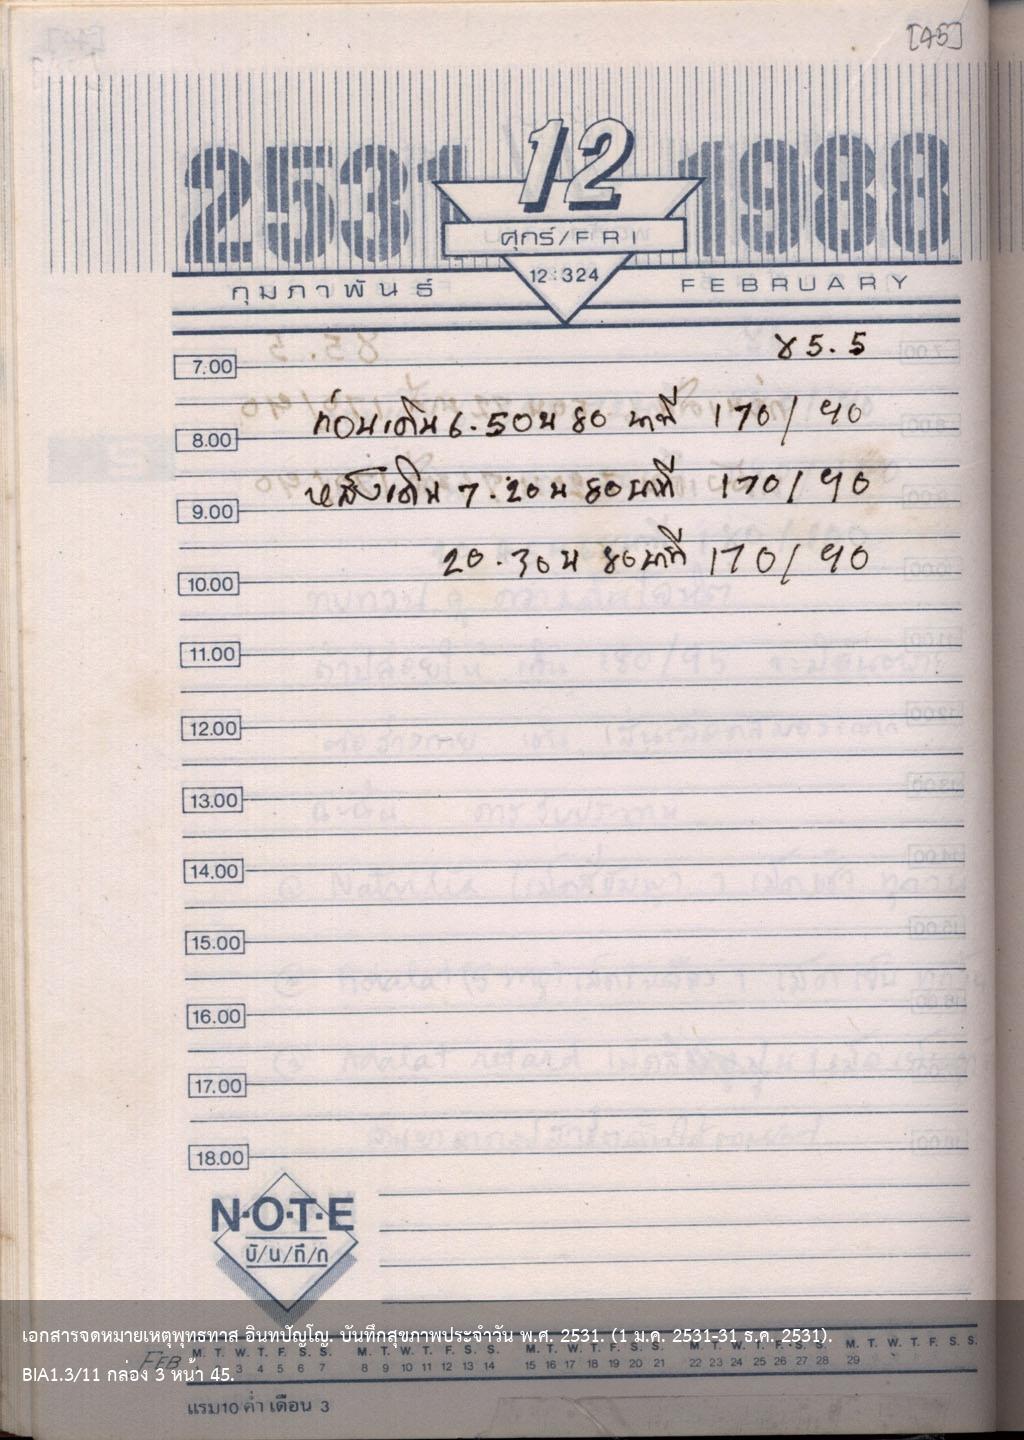 [45]
2531 12 1988
ศุกร์/FRI
12:324
กุมภาพันธ์ FEBRUARY
7.00 85.5
ก่อนเดิน 6.50 น 80 นาที 170/90
8.00
หลังเดิน 7.20 น 80 นาที 170/90
9.00
20.30 น 80 นาที 170/90
10.00
11.00
12.00
13.00
14.00
15.00
16.00
17.00
18.00
N·O·T·E
บั/น/ทึ/ก
เอกสารจดหมายเหตุพุทธทาส อินทปัญโญ. บันทึกสุขภาพประจำวัน พ.ศ. 2531. (1 ม.ค. 2531-31 ธ.ค. 2531).
M. T. W. T. F. S. S. M. T. W. T. F. S. S. M. T. W. T. F. S. S. M. T. W. T. F. S. S. M. T. W. T. F. S. S.
FEB 1 2 3 4 5 6 7 8 9 10 11 12 13 14 15 16 17 18 19 20 21 22 23 24 25 26 27 28 29
BIA1.3/11 กล่อง 3 หน้า 45.
แรม10 ค่ำ เดือน 3